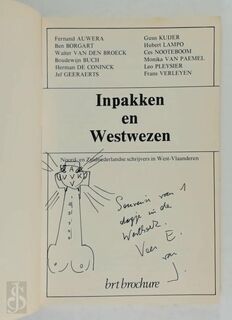 Fernand AUWERA
Ben BORGART
Walter VAN DEN BROECK
Boudewijn BUCH
Herman DE CONINCK
Jef GEERAERTS
Guus KUIJER
Hubert LAMPO
Ces NOOTEBOOM
Monika VAN PAEMEL
Leo PLEYSIER
Frans VERLEYEN
Inpakken
en
Westwezen
Noord- en Zuidnederlandse schrijvers in West-Vlaanderen
Souvenir van 1
dagje in de
Westhoek.
Voor E.
van
J.
brt brochure